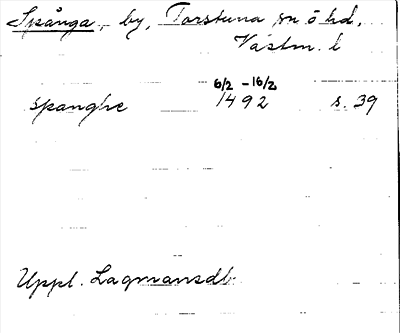 Spånga, by, Torstuna sn ö hd,
Västm. l
6/2 - 16/2
spanghe 1492 s. 39
Uppl. Lagmansdb.